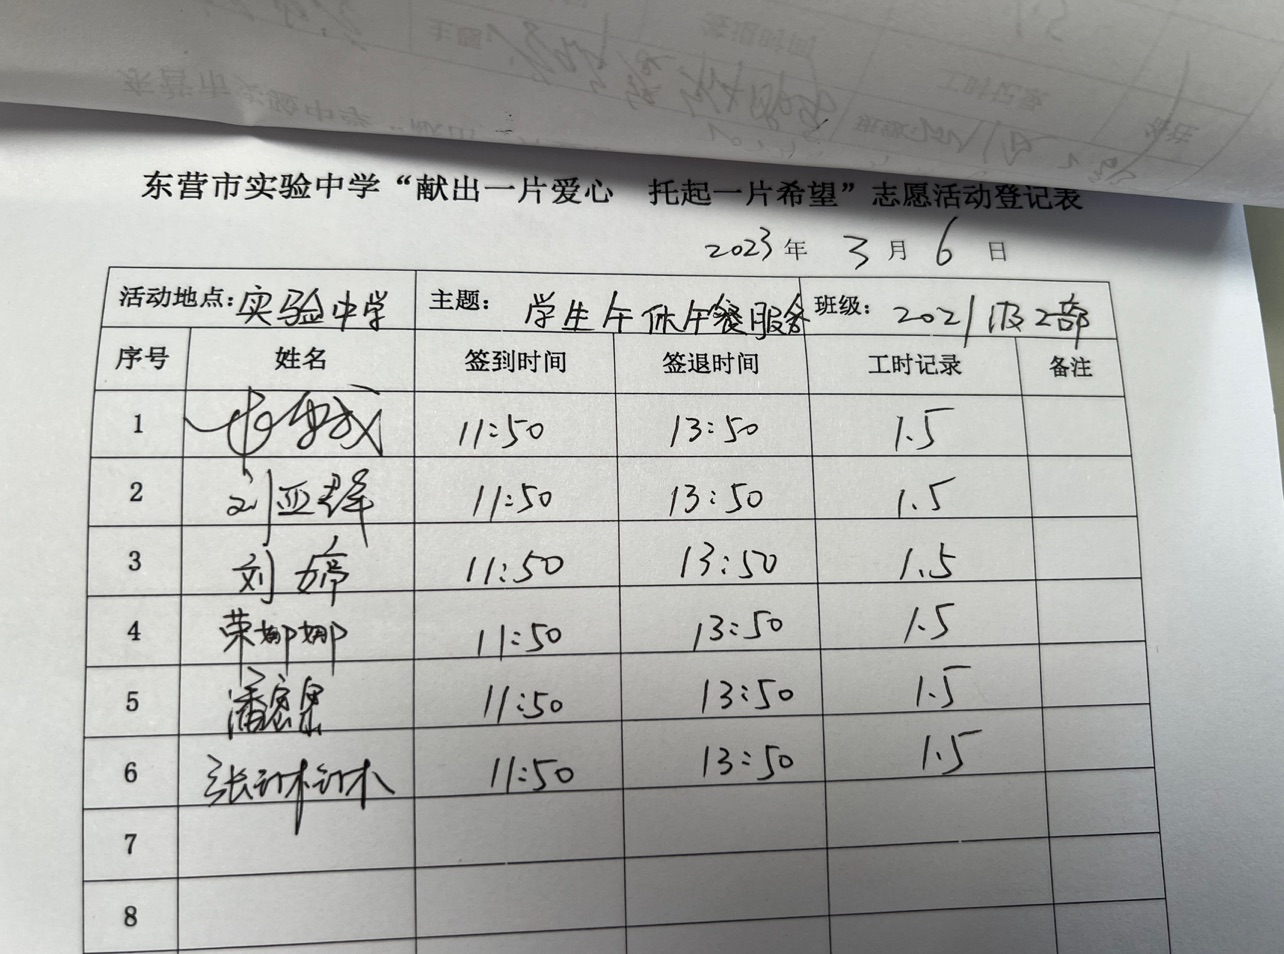 东营市实验中学“献出一片爱心 托起一片希望”志愿活动登记表
2023年 3月 6日
活动地点:实验中学 主题: 学生午休午餐服务 班级: 2021级2部
序号 姓名 签到时间 签退时间 工时记录 备注
1 11:50 13:50 1.5
2 刘亚群 11:50 13:50 1.5
3 刘婷 11:50 13:50 1.5
4 荣娜娜 11:50 13:50 1.5
5 潘 11:50 13:50 1.5
6 张 11:50 13:50 1.5
7
8